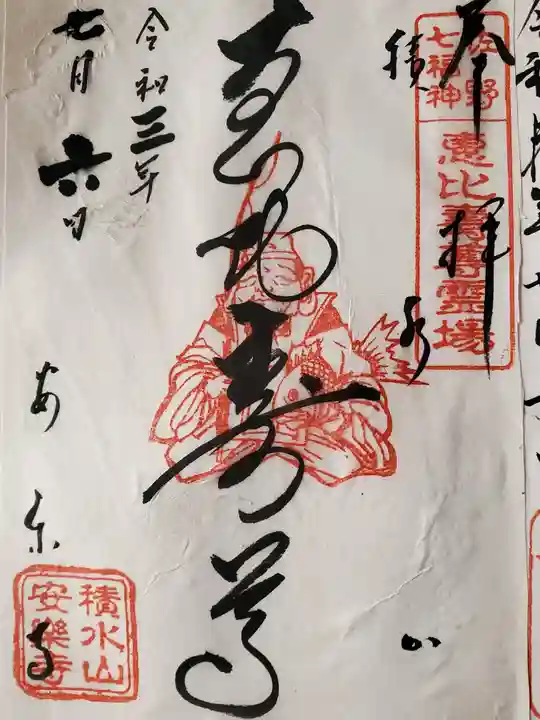 奉拝
佐野
七福神
恵比寿尊霊場
積水山
恵比寿尊
令和三年
七月六日
安楽寺
積水山
安樂寺